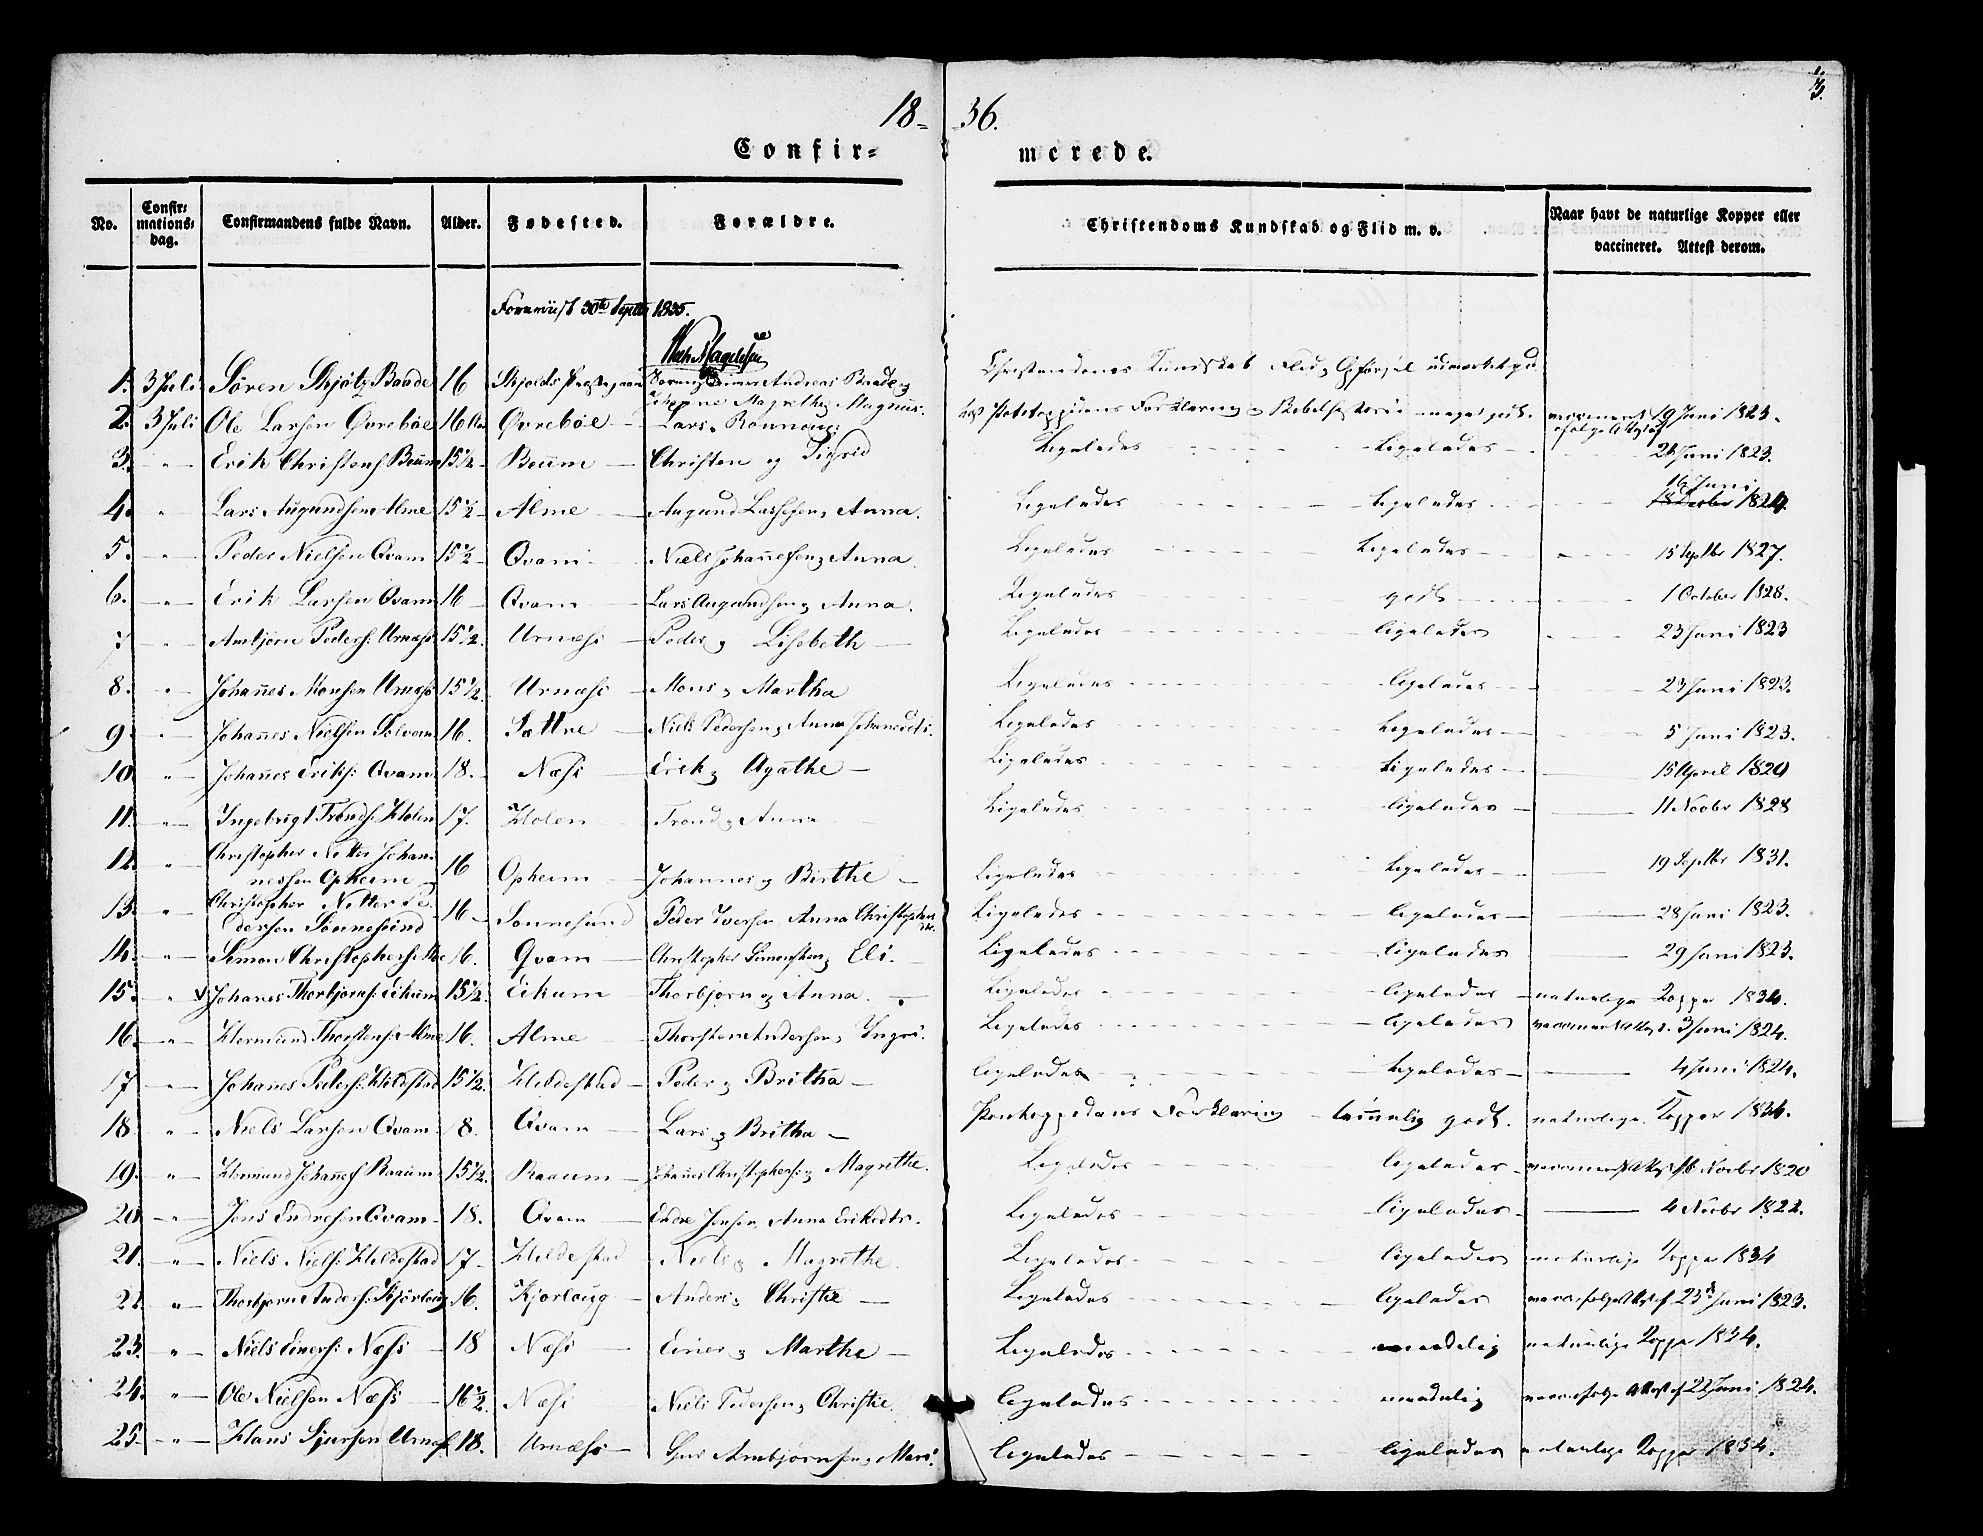 18 - 36.
3.
Confir- merede.
No. Confir-mations-dag. Confirmandens fulde Navn. Alder. Fødested. Forældre. Christendoms Kundskab og Flid m. v. Naar havt de naturlige Kopper eller vaccineret. Attest derom.
1835.
1. 3 Juli Søren Skjøtz Baade 16 Andreas Baade Christendoms Kundskab Flid
2. 3 Juli Ole Larsen Øvrebøe 16 Øvrebøe Lars Forklaring meget godt. 19 Juni 1823.
3. - " - Erik Christens Beüm 15 1/2 Beüm Christen og Sigrid Ligeledes Ligeledes 1823.
4. " Lars Augundsen Alme 15 1/2 Alme Augund Anna. Ligeledes Ligeledes 16 Juni 1824.
5. - " - Peder Nielsen Qvam 15 1/2 Qvam Niels Johannesen, Anna. Ligeledes Ligeledes 15 Septbr 1827.
6. - " - Erik Larsen Qvam 16 Qvam Lars Augundsen, Anna. Ligeledes godt 1 October 1828.
7 - " - Ambjørn Peders: Urnæss 15 1/2. Urnæss Peder og Lisebeth Ligeledes ligeledes 23 Juni 1823
8. " Johannes Monsen Urnæss 15 1/2. Urnæss Mons og Martha Ligeledes ligeledes 23 Juni 1823.
9. " Johannes Nielsen Solvorn 16. Sættre Niels Pedersen, Anna Ligeledes Ligeledes 5 Juni 1823.
10. " Johannes Eriks: Qvam 18. Næss Erik og Agathe Ligeledes Ligeledes 15 April 1829
11. - " - Ingebrigt Tronds: Holen 17. Holen Trond og Anna Ligeledes ligeledes 11 Novbr 1828
12. " Christopher Nitter Johannessen Opheim 16 Opheim Johannes og Birthe Ligeledes Ligeledes 19 Septbr 1831.
13. - " - Christopher Nitter Pedersen Sønnesünd 16 Sønnesund Peder Iversen Anna Ligeledes ligeledes 28 Juni 1823.
14. - " - Simon 16. Qvam Christopher Simonsen, Eli. Ligeledes ligeledes 29 Juni 1823.
15. " Johanes Thorbjørns: Eikum 15 1/2. Eikum Thorbjørn og Anna. Ligeledes ligeledes naturlige Kopper 1834.
16. - " - Hermund Thorstens: Alme 16. Alme Thorsten Andersen, Ligeledes ligeledes 3 Juni 1824.
17 - " - Johanes Peders: Hildestad 15 1/2. Hildestad Peder og Britha ligeledes Ligeledes 4 Juni 1824.
18. " Niels Larsen Qvam 18. Qvam Lars og Britha Pontoppidans Forklaring temmelig godt. naturlige Kopper 1834.
19. " Hermund Johannes Raaum 15 1/2. Raaum Johannes Christophers: og Magrethe. Ligeledes ligeledes 16 Novbr 1820
20. - " - Jens Endresen Qvam 18. Qvam Endre Jensen, Anna Ligeledes ligeledes 4 Novbr 1822.
21. " Niels Niels: Hildestad 17 Hildestad Niels og Magrethe. Ligeledes ligeledes naturlige Kopper 1834
22. " Thorbjørn Anders: Kjørloug 16. Kjørloug Anders og Christie Ligeledes ligeledes 23 Juni 1823.
23. " Niels Einers: Næss 18 Næss Einer og Marthe Ligeledes maadelig naturlige Kopper 1834.
24. " Ole Nielsen Næss 16 1/2. Næss Niels Pedersen, Christie. ligeledes maadelig 22 Juni 1824.
25. - " - Hans Sjursen Urnæss 18. Urnæss Sjur Ambjørnsen, ligeledes ligeledes naturlige Kopper 1834.